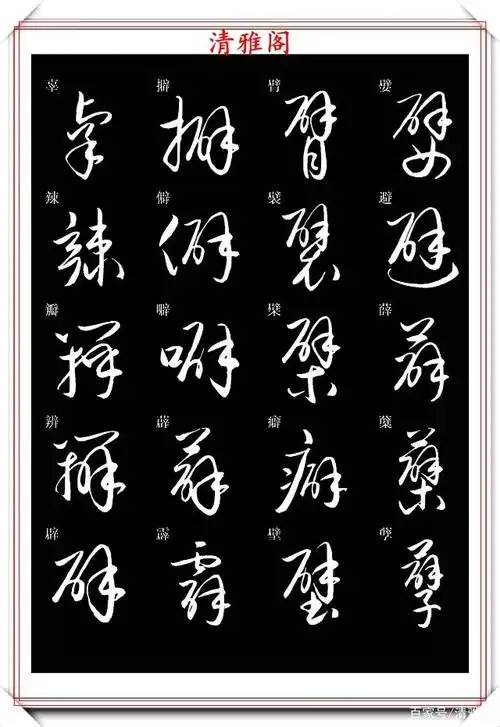 清雅阁
辜 擗 臂 嬖
辣 僻 襞 避
瓣 噼 檗 薛
辨 薜 癖 蘖
辟 霹 壁 孽
百家号/清雅